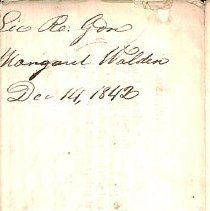 Lic Ro. Gdn
Margaret Walden
Dec 14, 1842